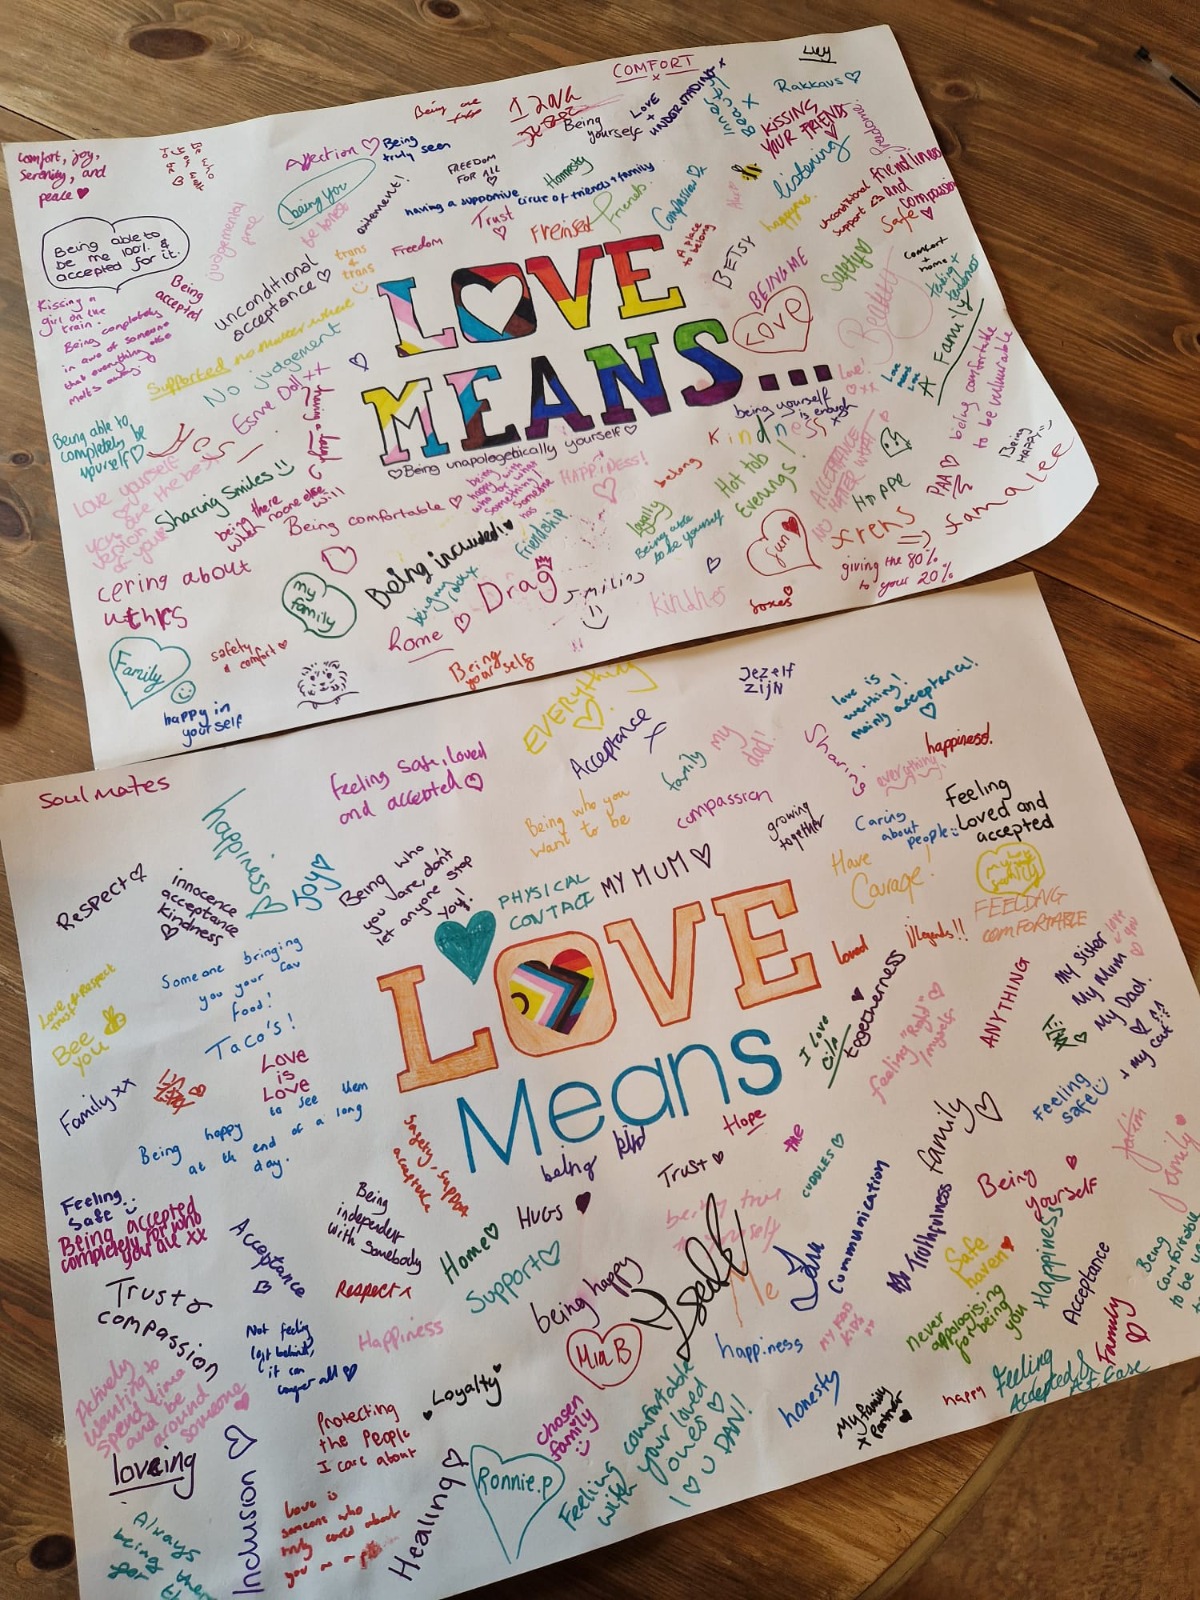 Lucy
COMFORT
Rakkaus
Being
yourself
LOVE
+
UNDERSTANDING
KISSING
YOUR FRIENDS
comfort, joy,
serenity, and
peace
Affection
Being
truly seen
FREEDOM
FOR ALL
Honesty
listening
friendliness
and
compassion
being you
be honest
having a supportive circle of friends + family
Trust
Friends
Compassion
happyness
unconditional
support
Safe
Being able to
be me 100% &
accepted for it.
judgemental
free
Freedom
A place
to belong
BETSY
BEING ME
Safety
comfort
+
home
Being
accepted
unconditional
acceptance
trans
4
trans
LOVE
MEANS...
Love
A Family
Kissing a
girl on the
train.
Being completely
in awe of someone
that everything else
melts away.
Supported no matter where
No judgement
being comfortable
to be vulnerable
Being able to
completely be
yourself
Yes
having a laugh
Being unapologetically yourself
being yourself
is enough
kindness
Being
HAPPY
love yourself
Sharing Smiles
being there
when no one else
will
Being comfortable
HAPPINESS!
belong
Hot tub
Evenings!
ACCEPTANCE
NO MATTER WHAT
HAPPE
Being included!
friendship
loyally
Being able
to be yourself
fun
giving the 80%
to your 20%
cering about
my
family
Drag
smiling
kindnes
home
Family
safety
+ comfort
Being
yourself
happy in
yourself
EVERYthing
JEZELF
ZIJN
love is
worthing!
mainly acceptance!
Soulmates
feeling safe, loved
and accepted
Acceptance
family
my
dad!
Sharing
happiness!
everything
happiness
Being who you
want to be
compassion
growing
together
Caring
about
people
Feeling
Loved and
accepted
Respect
innocence
acceptance
kindness
Joy
Being who
you are, don't
let anyone stop
you!
PHYSICAL
CONTACT
MY MUM
Have
Courage!
FEELING
COMFORTABLE
Love,
Trust, + Respect
Bee
you
Someone bringing
you your fav
food!
Taco's!
LOVE
Means
loved
Legends!!
togetherness
feeling "Right"
/myself
ANYTHING
My Sister
My Mum
My Dad
+ My Cat
love
you
愛
Family xx
Love
is
Love
Being happy to see them
at the end of a long
day.
Feeling
safe
being kind
Hope
Trust
the
CUDDLES
family
Feeling
safe
Being accepted
completely for who
you are xx
Acceptance
Being
independent
with somebody
Home
HUGS
Support
being true
Communication
Truthfulness
Being
yourself
Safe
haven
Happiness
Acceptance
Family
Trust &
compassion
Respect
being happy
Me
Never
apologising
for being
you
Not feeling
left behind,
it can
conquer all
Happiness
happiness
Feeling
Accepted &
At Ease
Actively
wanting to
spend time
and be
around
someone
Loyalty
honesty
My family
+ Partner
happy
Protecting
the People
I care about
chosen
family
Feeling comfortable
with your loved
ones
I ♡ U DAN!
loveing
Inclusion
Healing
Ronnie.P
love is
someone who
truly cares about
you
Always
being there